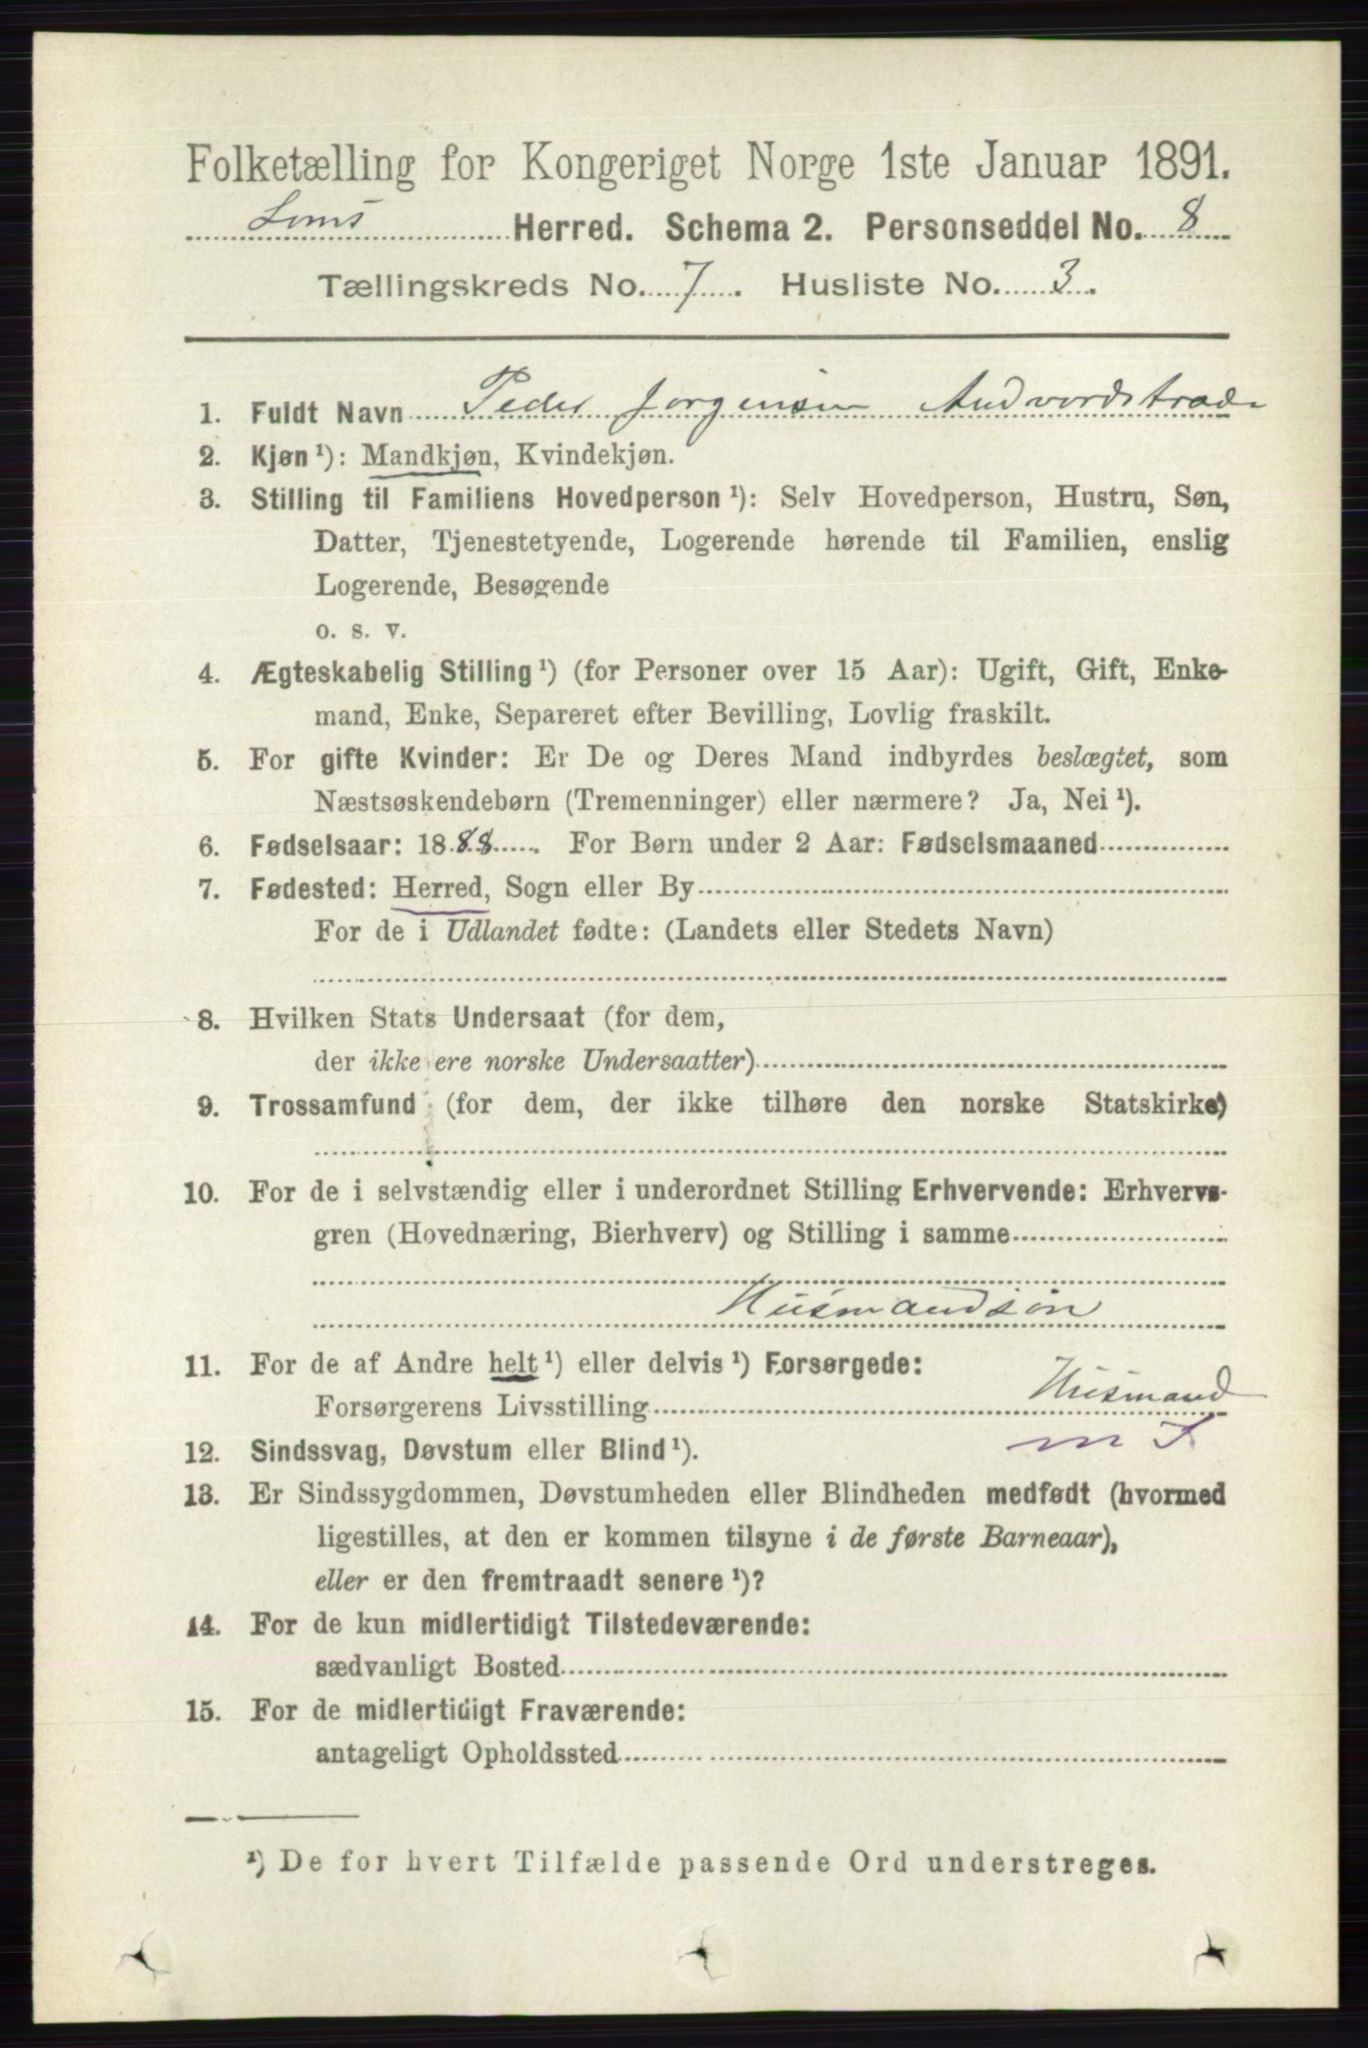 Folketælling for Kongeriget Norge 1ste Januar 1891.
Loms Herred. Schema 2. Personseddel No. 8
Tællingskreds No. 7. Husliste No. 3.
1. Fuldt Navn Peder Jorgensen Andvordstræde
2. Kjøn ¹): Mandkjøn, Kvindekjøn.
3. Stilling til Familiens Hovedperson ¹): Selv Hovedperson, Hustru, Søn,
Datter, Tjenestetyende, Logerende hørende til Familien, enslig
Logerende, Besøgende
o. s. v.
4. Ægteskabelig Stilling ¹) (for Personer over 15 Aar): Ugift, Gift, Enke-
mand, Enke, Separeret efter Bevilling, Lovlig fraskilt.
5. For gifte Kvinder: Er De og Deres Mand indbyrdes beslægtet, som
Næstsøskendebørn (Tremenninger) eller nærmere? Ja, Nei ¹).
6. Fødselsaar: 1888. For Børn under 2 Aar: Fødselsmaaned
7. Fødested: Herred, Sogn eller By
For de i Udlandet fødte: (Landets eller Stedets Navn)
8. Hvilken Stats Undersaat (for dem,
der ikke ere norske Undersaatter)
9. Trossamfund (for dem, der ikke tilhøre den norske Statskirke)
10. For de i selvstændig eller i underordnet Stilling Erhvervende: Erhvervs-
gren (Hovednæring, Bierhverv) og Stilling i samme
Husmandsøn
11. For de af Andre helt ¹) eller delvis ¹) Forsørgede:
Forsørgerens Livsstilling Husmand
m J
12. Sindssvag, Døvstum eller Blind ¹).
13. Er Sindssygdommen, Døvstumheden eller Blindheden medfødt (hvormed
ligestilles, at den er kommen tilsyne i de første Barneaar),
eller er den fremtraadt senere ¹)?
14. For de kun midlertidigt Tilstedeværende:
sædvanligt Bosted
15. For de midlertidigt Fraværende:
antageligt Opholdssted
¹) De for hvert Tilfælde passende Ord understreges.